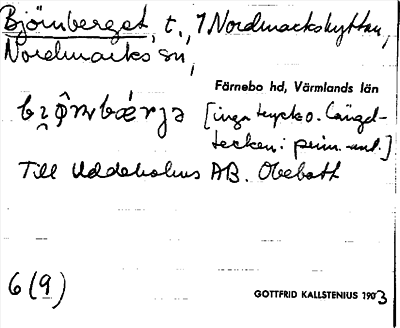 Björnberget, t., 1 Nordmarkshyttan,
Nordmarks sn,
Färnebo hd, Värmlands län
[inga tryck o. längd-
tecken i prim.-uppt.]
Till Uddeholms AB. Obebott
6 (9)
GOTTFRID KALLSTENIUS 1903